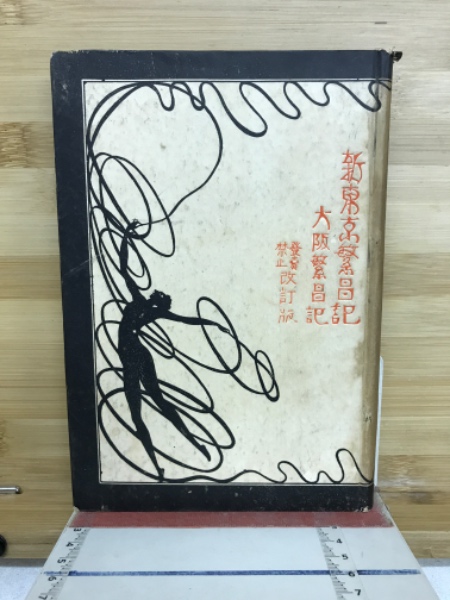 新東京繁昌記
大阪繁昌記
発売禁止改訂版
3
4
5
6
4
5
6
7